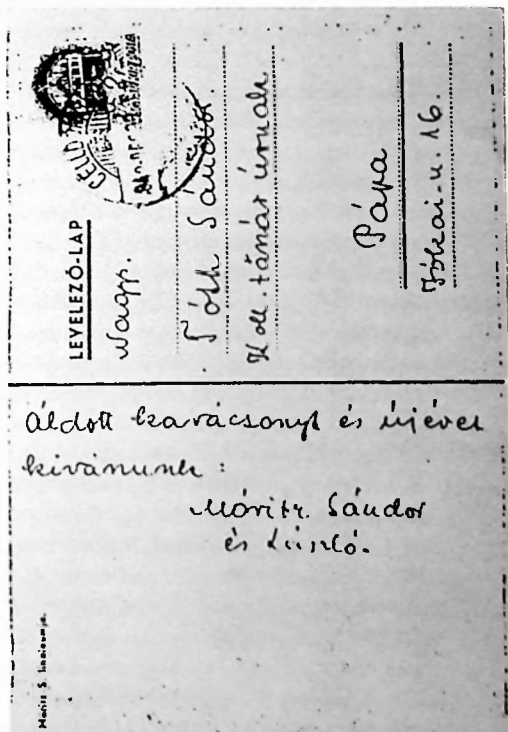 LEVELEZŐ-LAP
Nagys.
Tóth Sándor
Koll tanár úrnak
Pápa
Jókai-u. 16.
Áldott karácsonyt és újévet
kívánunk:
Móritz Sándor
és László.
Moritz S.